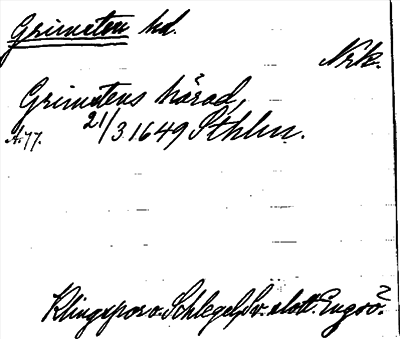 Grimsten hd.
Nrk.
Grimstens härad,
A:77. 21/3 1649 Sthlm.
Klingspor o. Schlegel, Sv. slott. Engsö?